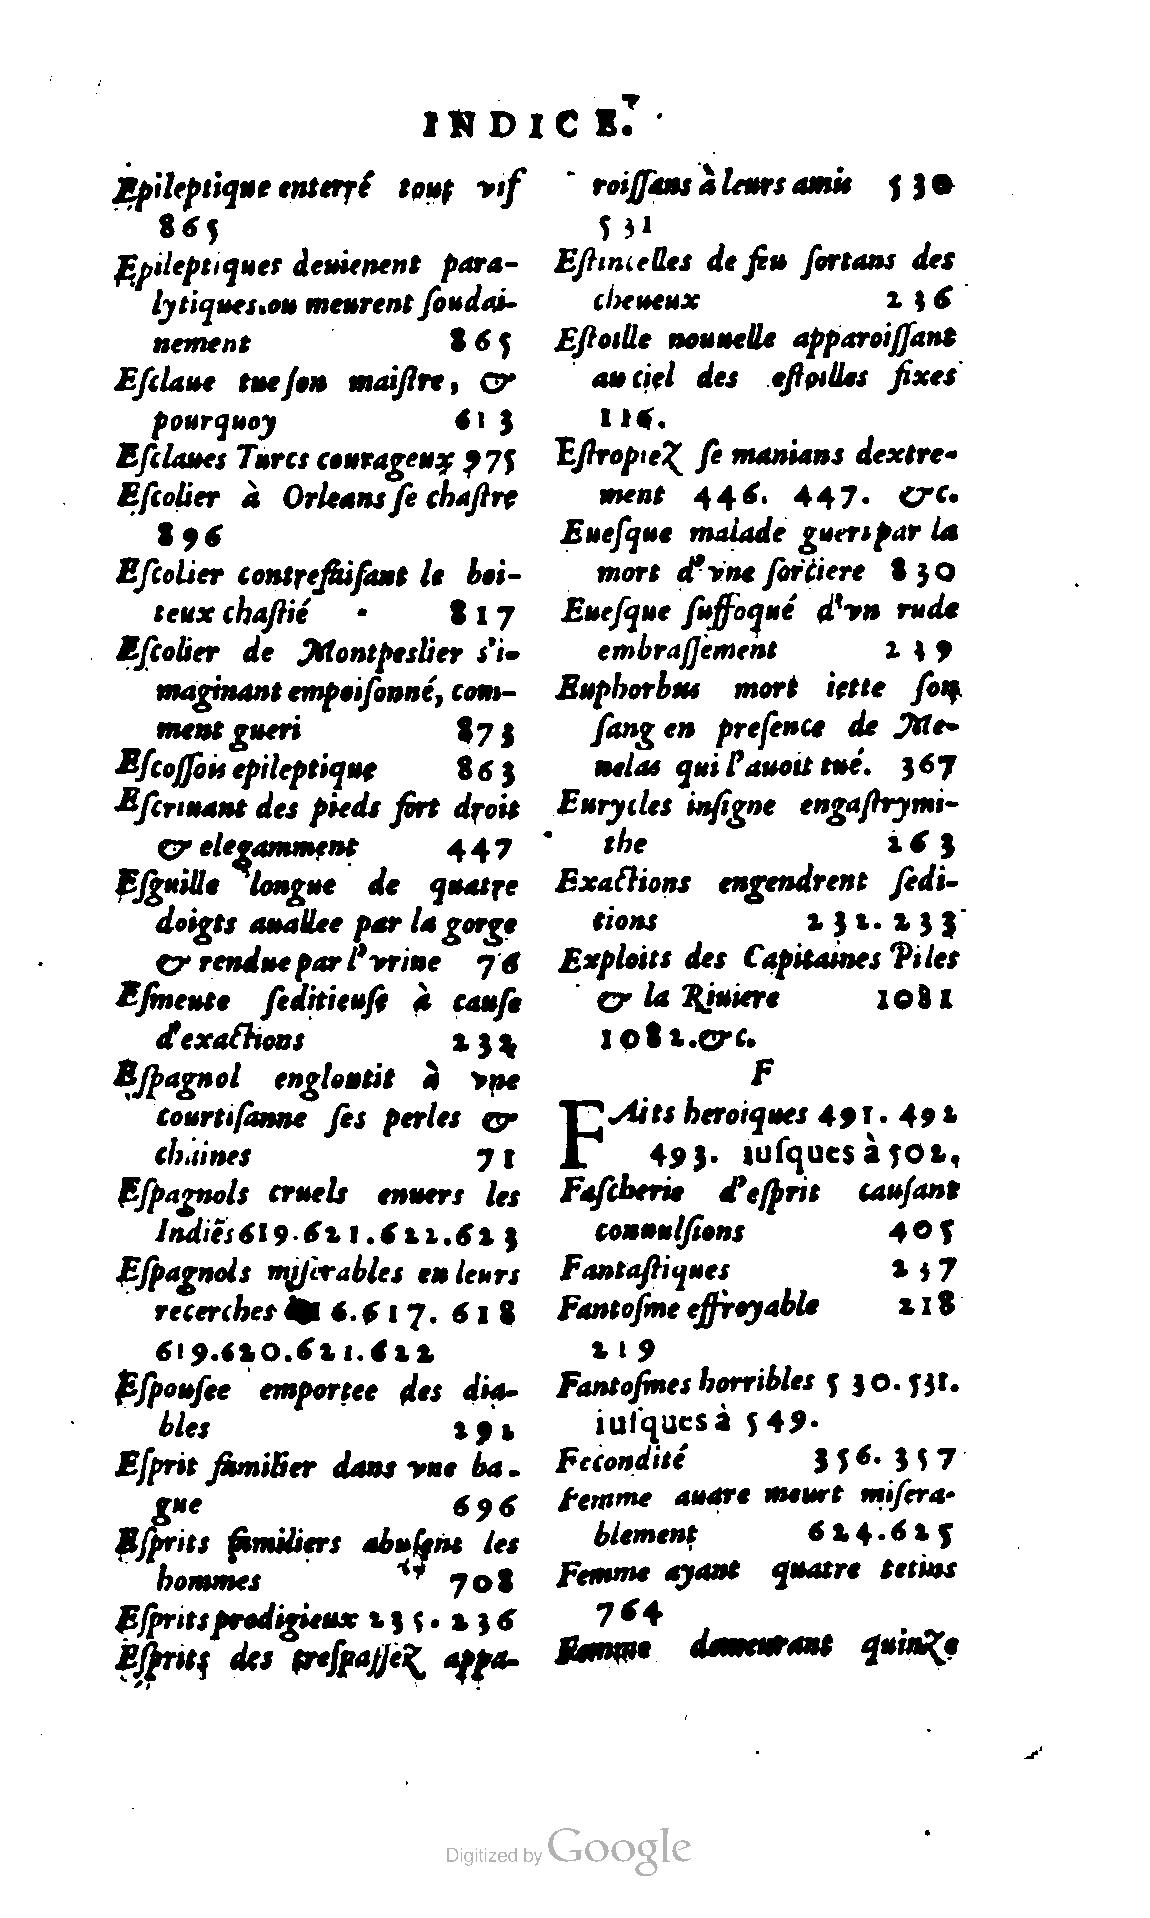 INDICE.
Epileptique enterré tout vif
865
Epileptiques deuienent para-
lytiques, ou meurent ſoudai-
nement 865
Eſclaue tue ſon maiſtre, &
pourquoy 613
Eſclaues Turcs courageux 975
Eſcolier à Orleans ſe chaſtre
896
Eſcolier contrefaiſant le boi-
teux chaſtié 817
Eſcolier de Montpeslier s'i-
maginant empoiſonné, com-
ment gueri 873
Eſcoſſois epileptique 863
Eſcriuant des pieds fort droit
& elegamment 447
Eſguille longue de quatre
doigts auallee par la gorge
& rendue par l'vrine 76
Eſmeute ſeditieuſe à cauſe
d'exactions 232
Eſpagnol engloutit à vne
courtiſanne ſes perles &
chaines 71
Eſpagnols cruels enuers les
Indiẽs 619.621.622.623
Eſpagnols miſerables en leurs
recerches 6.617. 618
619.620.621.622
Eſpouſee emportee des dia-
bles 292
Eſprit familier dans vne ba-
gue 696
Eſprits familiers abuſent les
hommes 708
Eſprits prodigieux 235. 236
Eſprits des treſpaſſez appa-
roiſſans à leurs amis 530
531
Eſtincelles de feu ſortans des
cheueux 236
Eſtoille nouuelle apparoiſſant
au ciel des eſtoilles fixes
116.
Eſtropiez ſe manians dextre-
ment 446. 447. &c.
Eueſque malade gueri par la
mort d'vne ſorciere 830
Eueſque ſuffoqué d'vn rude
embraſſement 239
Euphorbus mort iette ſon
ſang en preſence de Me-
nelas qui l'auoit tué. 367
Eurycles inſigne engaſtrymi-
the 263
Exactions engendrent ſedi-
tions 232. 233
Exploits des Capitaines Piles
& la Riuiere 1081
1082.&c.
F
FAits heroiques 491. 492
493. iuſques à 502,
Faſcherie d'eſprit cauſant
conuulſions 405
Fantaſtiques 237
Fantoſme effroyable 218
219
Fantoſmes horribles 530. 531.
iuſques à 549.
Fecondité 356. 357
Femme auare meurt miſera-
blement 624.625
Femme ayant quatre tetins
764
Femme demeurant quinze
Digitized by Google